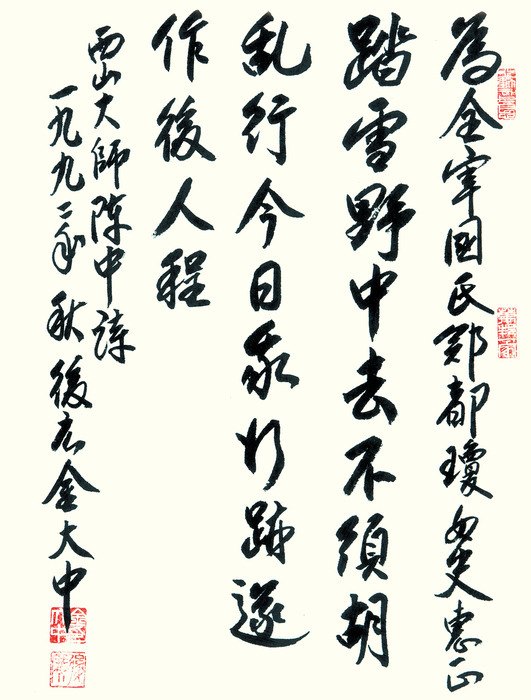 為全宰國氏鄭都瓊女史惠正
踏雪野中去不須胡
乱行今日我行跡遂
作後人程
西山大師陣中詩
一九九二年秋後広金大中